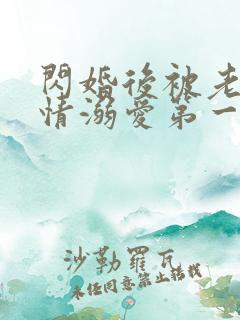 閃婚後被老
情溺愛第一
沙勒羅瓦
未經同意禁止轉載